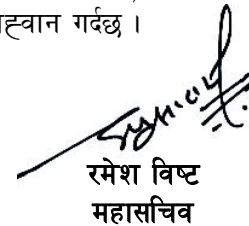 ह्वान गर्दछ ।
रमेश विष्ट
महासचिव